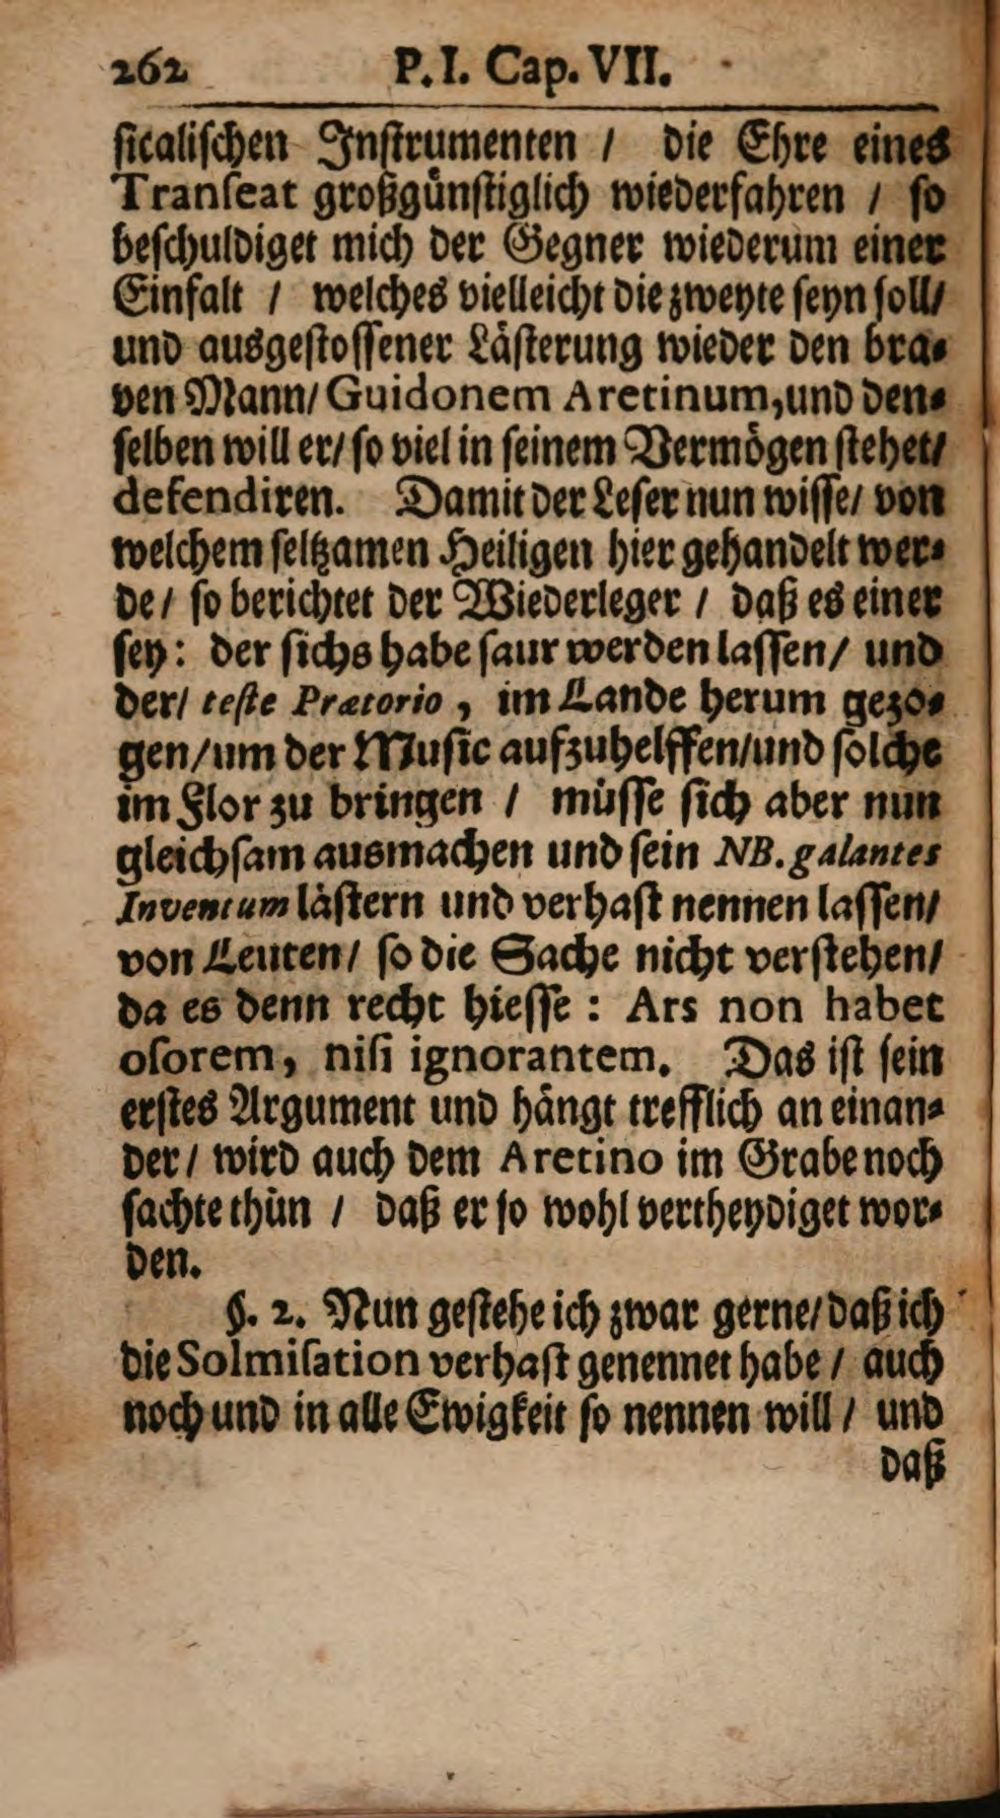 262 P. I. Cap. VII.
ſicaliſchen Inſtrumenten / die Ehre eines
Tranſeat großgünſtiglich wiederfahren / ſo
beſchuldiget mich der Gegner wiederum einer
Einfalt / welches vielleicht die zweyte ſeyn ſoll/
und ausgeſtoſſener Läſterung wieder den bra-
ven Mann/ Guidonem Aretinum, und den-
ſelben will er/ ſo viel in ſeinem Vermögen ſtehet/
defendiren. Damit der Leſer nun wiſſe/ von
welchem ſeltzamen Heiligen hier gehandelt wer-
de / ſo berichtet der Wiederleger / daß es einer
ſey: der ſichs habe ſaur werden laſſen/ und
der/ teſte Prætorio, im Lande herum gezo-
gen/um der Muſic aufzuhelffen/und ſolche
im Flor zu bringen / müſſe ſich aber nun
gleichſam ausmachen und ſein NB. galantes
Inventum läſtern und verhaſt nennen laſſen/
von Leuten/ ſo die Sache nicht verſtehen/
da es denn recht hieſſe: Ars non habet
oſorem, niſi ignorantem. Das iſt ſein
erſtes Argument und hängt trefflich an einan-
der / wird auch dem Aretino im Grabe noch
ſachte thün / daß er ſo wohl vertheydiget wor-
den.
§. 2. Nun geſtehe ich zwar gerne/ daß ich
die Solmiſation verhaſt genennet habe / auch
noch und in alle Ewigkeit ſo nennen will / und
daß